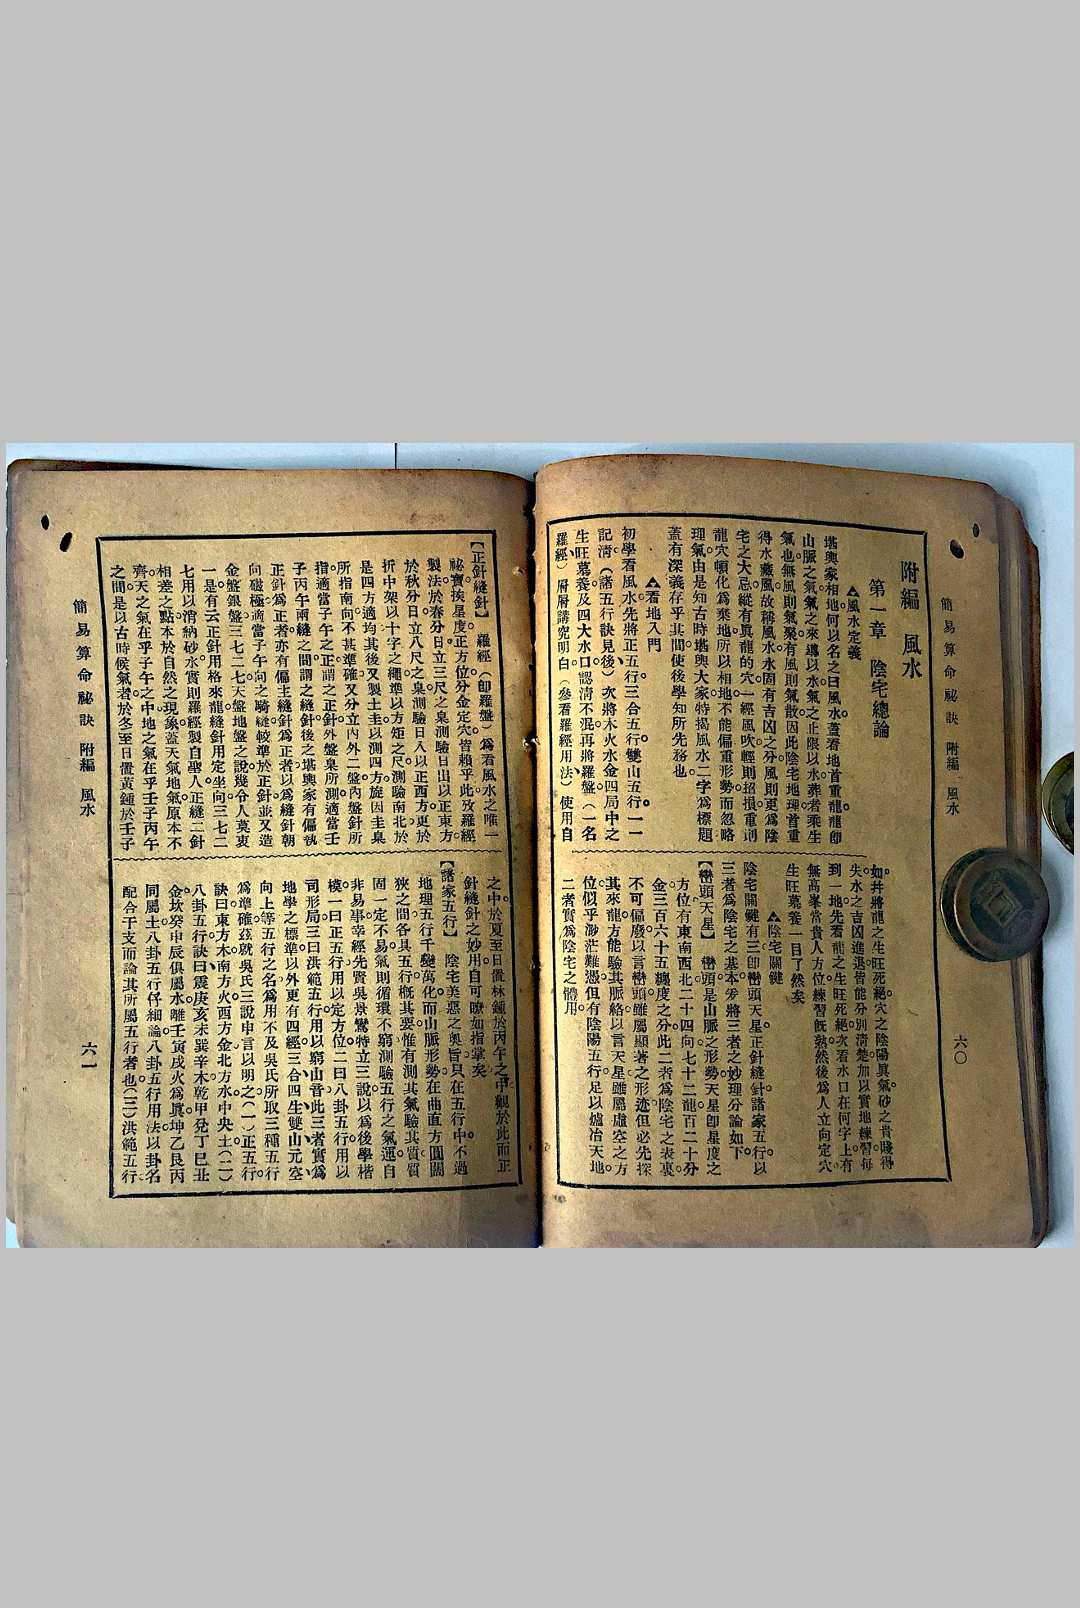 簡易算命祕訣 附編 風水
六〇
附編 風水
第一章 陰宅總論
▲風水定義
堪輿家相地何以名之曰風水。蓋看地首重龍。龍卽
山脈之氣。氣之來導以水。氣之止限以水。葬者乘生
氣也。無風則氣聚。有風則氣散。因此陰宅地理首重
得水藏風。故稱風水。水固有吉凶之分。風則更爲陰
宅之大忌。縱有眞龍的穴。一經風吹。輕則招損。重則
龍穴頓化爲棄地。所以相地不能偏重形勢而忽略
理氣。由是知古時堪輿大家特揭風水二字爲標題
蓋有深義存乎其間。使後學知所先務也
▲看地入門
初學看風水。先將正五行三合五行雙山五行一一
記清（諸五行訣見後）次將木火水金四局中之
生旺墓養及四大水口認清不混。再將羅盤（一名
羅經）層層講究明白（參看羅經用法）使用自
如。并將龍之生旺死絕。穴之陰陽眞氣。砂之貴賤。得
失水之吉凶進退。皆能分別清楚。加以實地練習。每
到一地。先看龍之生旺死絕。次看水口在何字上。有
無高峯當貴人方位。練習旣熟。然後爲人立向定穴
生旺墓養一目了然矣
▲陰宅關鍵
陰宅關鍵有三。卽巒頭天星正針縫針諸家五行。以
三者爲陰宅之基本。茲將三者之妙理分論如下。
【巒頭天星】 巒頭是山脈之形勢。天星卽星度之
方位。有東南西北二十四向七十二龍百二十分
金三百六十五纏度之分。此二者爲陰宅之表裏
不可偏廢。以言巒頭。雖屬顯著之形迹。但必先探
其來龍。方能驗其脈絡。以言天星。雖屬虛空之方
位。似乎渺茫難憑。但有陰陽五行。足以爐冶天地。
二者實爲陰宅之體用。
【正針縫針】 羅經（卽羅盤）爲看風水之唯一
祕寶。挨星度。正方位。分金定穴。皆賴乎此。攷羅經
製法。於春分日立三尺之臬。測驗日出以正東方
於秋分日立八尺之臬。測驗日入以正西方。更於
折中架以十字之繩。準以方矩之尺。測驗南北。於
是四方適均。其後又製土圭以測四方。旋因圭臬
所指南向不甚準確。又分立內外二盤。內盤針所
指適當子午之正。謂之正針。外盤臬所測適當壬
子丙午兩縫之間。謂之縫針。後之堪輿家有偏執
正針爲正者。亦有偏主縫針爲正者。以爲縫針朝
向磁極。適當子午向之騎縫。較準於正針。並又造
金盤銀盤三七二七天盤地盤之說。幾令人莫衷
一是。有云正針用格來龍。縫針用定坐向。三七二
七用以消納砂水。實則羅經製自聖人。正縫二針
相差之點。本於自然之現象。蓋天氣地氣原本不
齊。天之氣在乎子午之中。地之氣在乎壬子丙午
之間。是以古時候氣者。於冬至日置黃鍾於壬子
之中。於夏至日置林鍾於丙午之中。觀於此而正
針縫針之妙用。自可瞭如指掌矣
【諸家五行】 陰宅美惡之奧旨。只在五行中。不過
地理五行千變萬化。而山脈形勢在曲直方圓闊
狹之間。各具五行。概其要惟有測其氣。驗其質。質
固一定不易。氣則循環不窮。測驗五行之氣運。自
非易事。幸經先賢吳景鸞特立三說。以爲後學楷
模。一曰正五行。用以定方位。二曰八卦五行。用以
司形局。三曰洪範五行。用以窮山音。此三者實爲
地學之標準。以外更有四經三合四生雙山元空
向上等五行之名。爲用不及吳氏所取三種五行
爲準確。茲就吳氏三說。申言以明之。（一）正五行。
訣曰。東方木。南方火。西方金。北方水。中央土。（二）
八卦五行。訣曰。震庚亥未巽辛木。乾甲兌丁巳丑
金。坎癸申辰俱屬水。離壬寅戌火爲眞。坤乙艮丙
同屬土。八卦五行仔細論。八卦五行用法。以卦名
配合干支而論其所屬五行者也。（三）洪範五行
簡易算命祕訣 附編 風水
六一